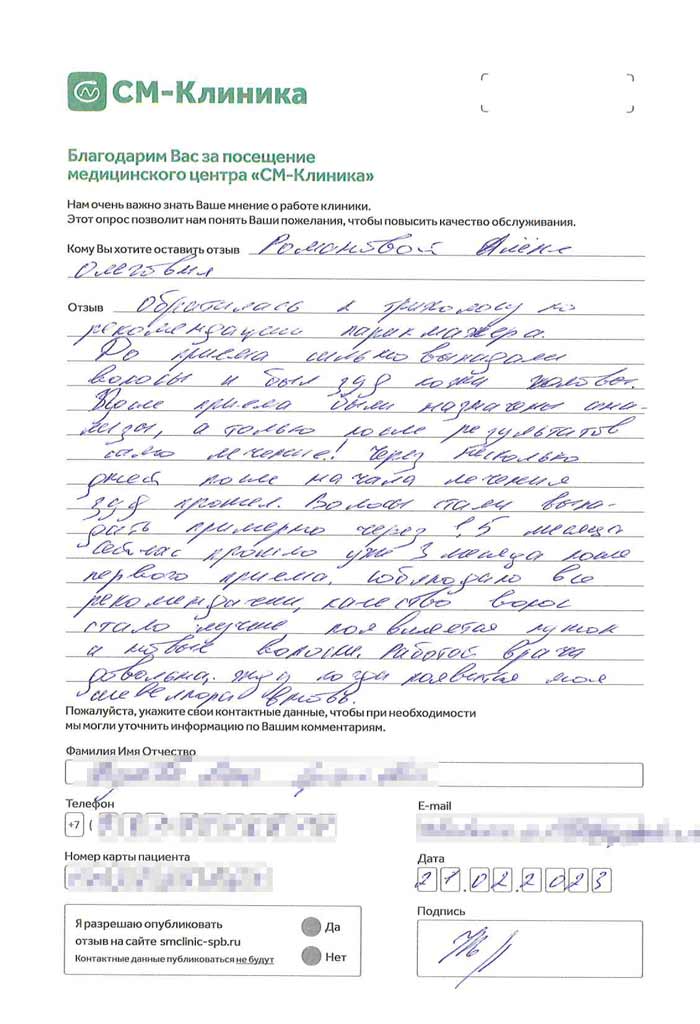 СМ-Клиника
Благодарим Вас за посещение
медицинского центра «СМ-Клиника»
Нам очень важно знать Ваше мнение о работе клиники.
Этот опрос позволит нам понять Ваши пожелания, чтобы повысить качество обслуживания.
Кому Вы хотите оставить отзыв Романовой Алёне
Олеговне
Отзыв обратилась к трихологу по
рекомендации парикмахера.
До приема сильно выпадали
волосы и был зуд кожи головы.
После приема были назначены ана-
лизы, а только после результатов
само лечение! Через несколько
дней после начала лечения
зуд прошел. Волосы стали выпа-
дать примерно через 1,5 месяца
Сейчас прошло уже 3 месяца после
первого приема. Соблюдаю все
рекомендации, качество волос
стало лучше появляется пушок
и новые волосы. Работой врача
довольна. Жду когда появится моя
шевелюра вновь.
Пожалуйста, укажите свои контактные данные, чтобы при необходимости
мы могли уточнить информацию по Вашим комментариям.
Фамилия Имя Отчество
Телефон
E-mail
+7 (
Номер карты пациента
Дата
21.02.2023
Я разрешаю опубликовать
отзыв на сайте smclinic-spb.ru
Контактные данные публиковаться не будут
Да
Нет
Подпись